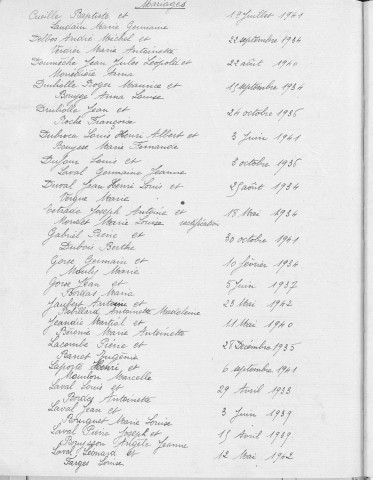 Mariages
Cueille Baptiste et 17 Juillet 1941
Marie Germaine
Delbos André Michel et 22 septembre 1934
Verdier Marie Antoinette
Doumèche Jean Jules Léopold et 22 août 1940
Monedière Anna
Druliolle Roger Maurice et 15 septembre 1934
Bouyer Anna Louise
Druliolle Jean et 24 octobre 1936
Roche Françoise
Louis Henri Albert et 3 Juin 1941
Marie Fernande
Dufour Louis et 3 octobre 1936
Laval Germaine Jeanne
Duval Jean Henri Louis et 25 août 1934
Vergne Marie
Joseph Antoine et 18 Mai 1934
Marie Louise rectification
Gabriel René et 30 octobre 1941
Dubois Berthe
Gorse Germain et 10 février 1934
Marie
Gorse Jean et 5 Juin 1937
Bordas Maria
Jaubert Antoine et 23 Mai 1942
Antoinette Madeleine
Jeandie Martial et 11 Mai 1940
Marie Antoinette
Lacombe Pierre et 28 Décembre 1935
Eugénie
Laporte Henri et 6 septembre 1941
Marcelle
Laval Louis et 29 Avril 1933
Antoinette
Laval Jean et 3 Juin 1939
Bouquet Marie Louise
Laval Pierre Joseph et 15 Avril 1939
Angèle Jeanne
Laval Léonard et 12 Mai 1902
Farges Louise